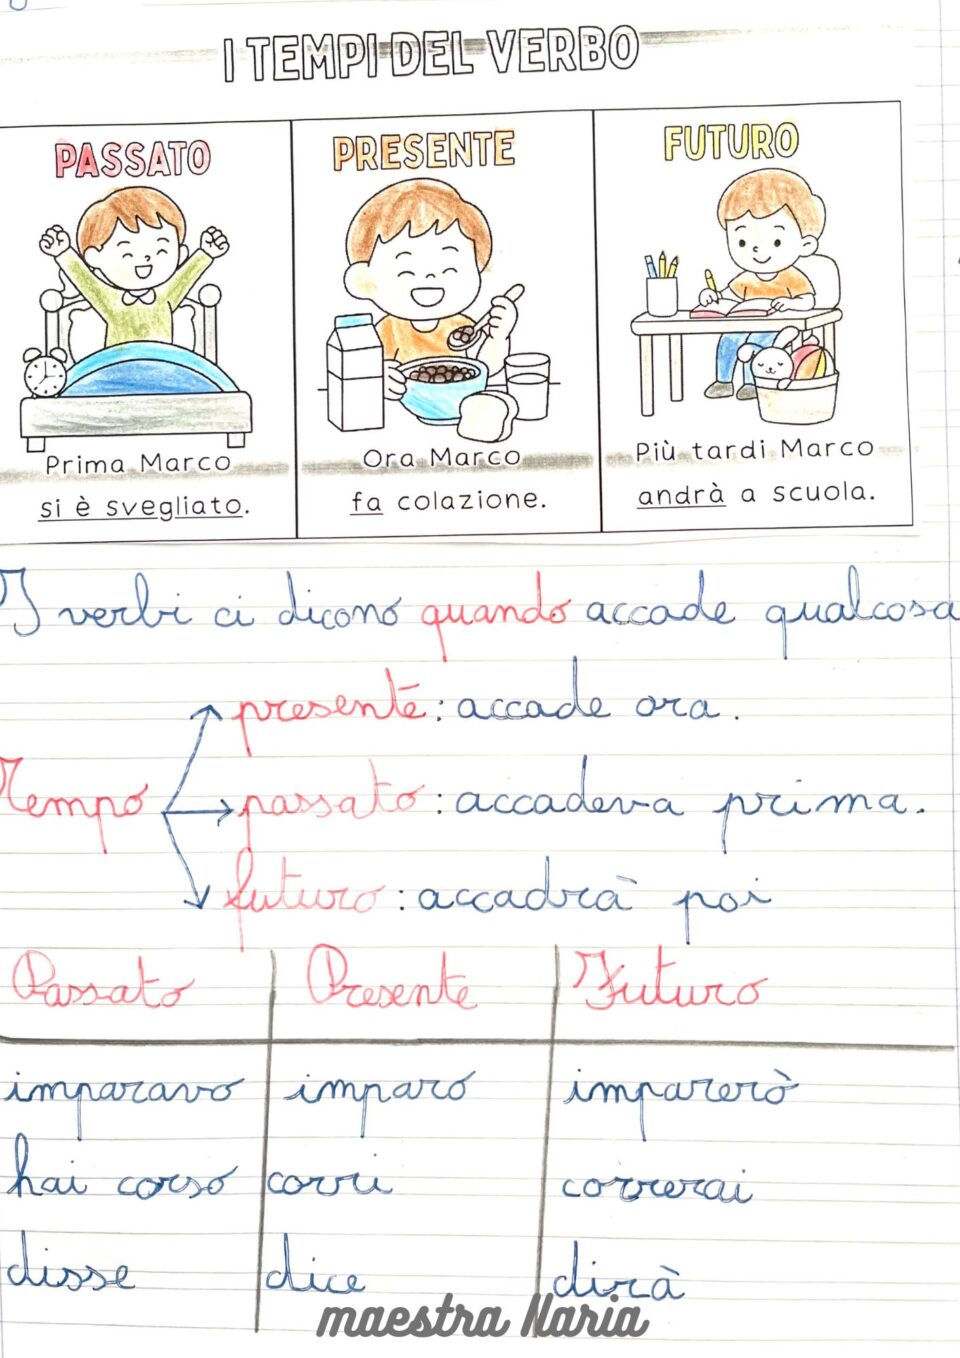 I TEMPI DEL VERBO
PASSATO
Prima Marco
si è svegliato.
PRESENTE
Ora Marco
fa colazione.
FUTURO
Più tardi Marco
andrà a scuola.
I verbi ci dicono quando accade qualcosa
presente: accade ora.
Tempo passato: accadeva prima.
futuro: accadrà poi
Passato Presente Futuro
imparavo imparo imparerò
hai corso corri correrai
disse dice dirà
maestra Ilaria